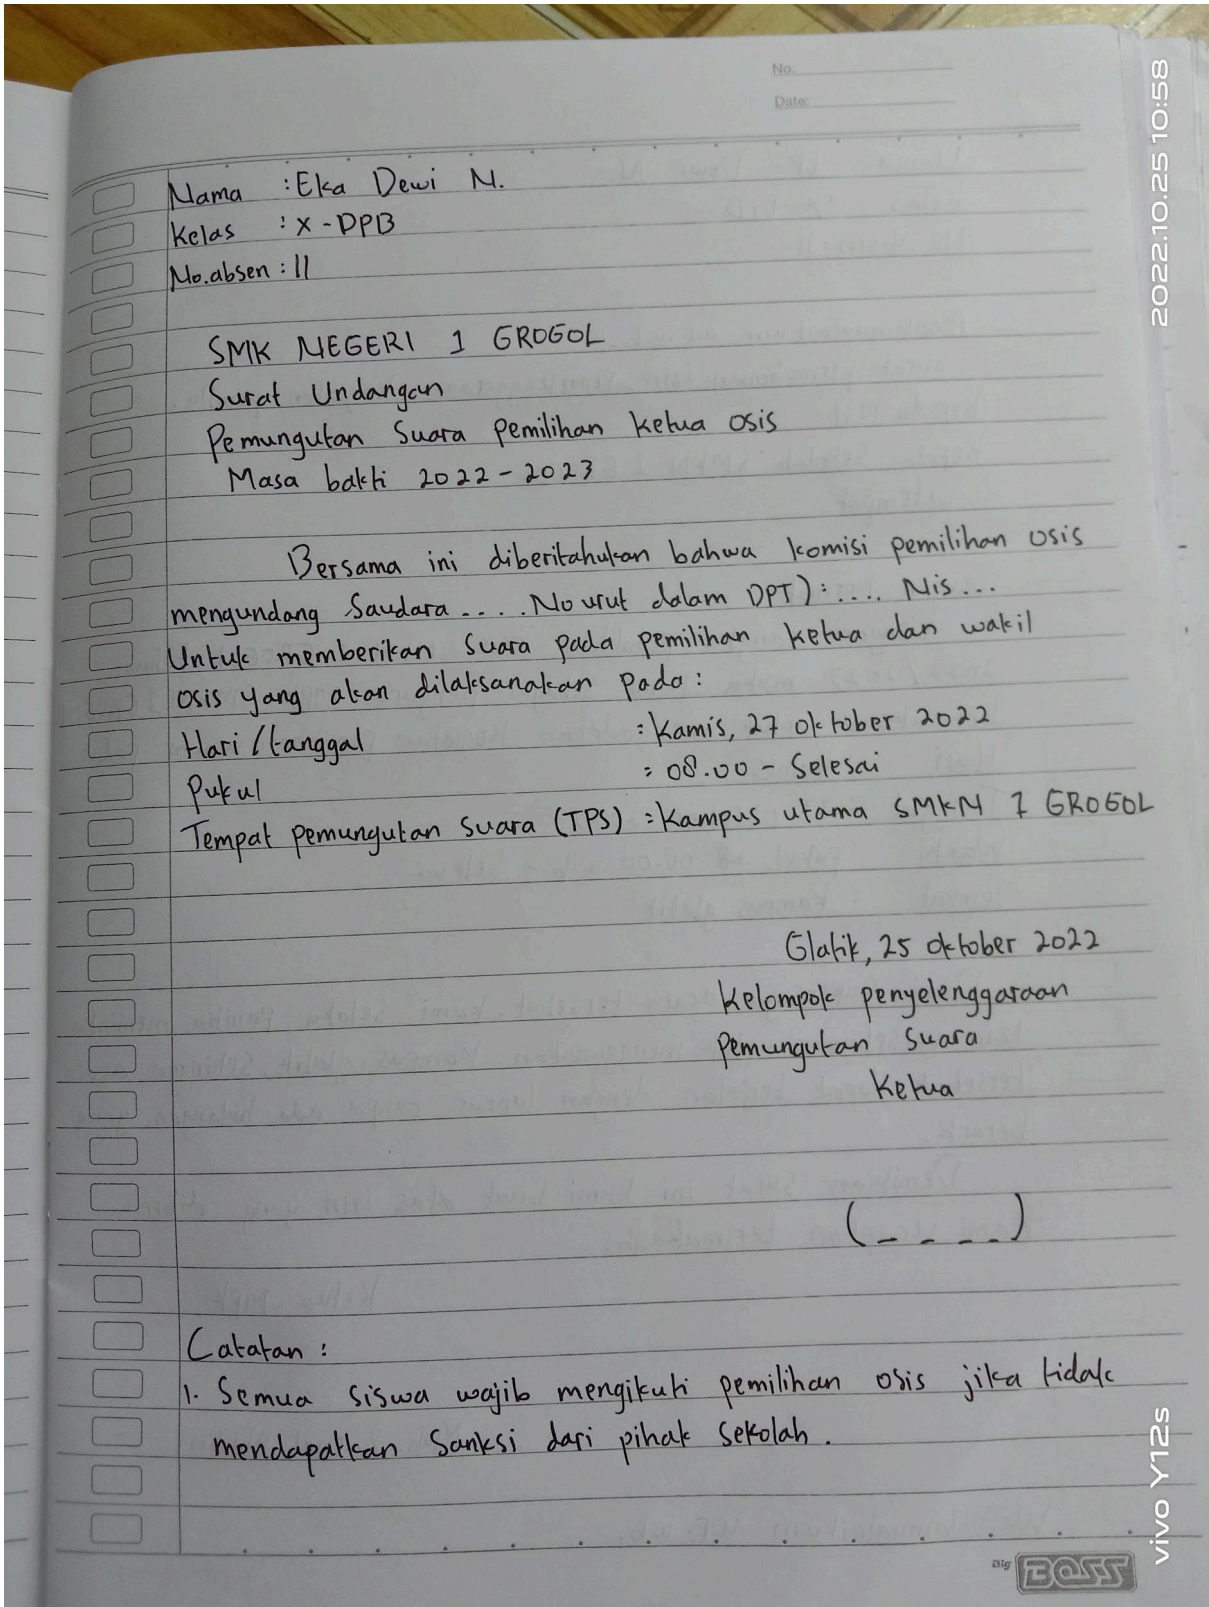 No.
Date:
Nama : Eka Dewi N.
Kelas : X - DPB
No.absen : 11
SMK NEGERI 1 GROGOL
Surat Undangan
Pemungutan Suara pemilihan ketua osis
Masa bakti 2022 - 2023
Bersama ini diberitahukan bahwa komisi pemilihan osis
mengundang Saudara .... No urut dalam DPT) : .... Nis ...
Untuk memberikan Suara pada pemilihan ketua dan wakil
osis yang akan dilaksanakan pada :
Hari / tanggal : Kamis, 27 oktober 2022
Pukul : 08.00 - Selesai
Tempat pemungutan suara (TPS) : Kampus utama SMKN 1 GROGOL
Glatik, 25 oktober 2022
Kelompok penyelenggaraan
pemungutan suara
Ketua
(_ _ _ _)
Catatan :
1. Semua siswa wajib mengikuti pemilihan osis jika tidak
mendapatkan Sanksi dari pihak sekolah.
Big BOSS
2022.10.25 10:58
vivo Y12s